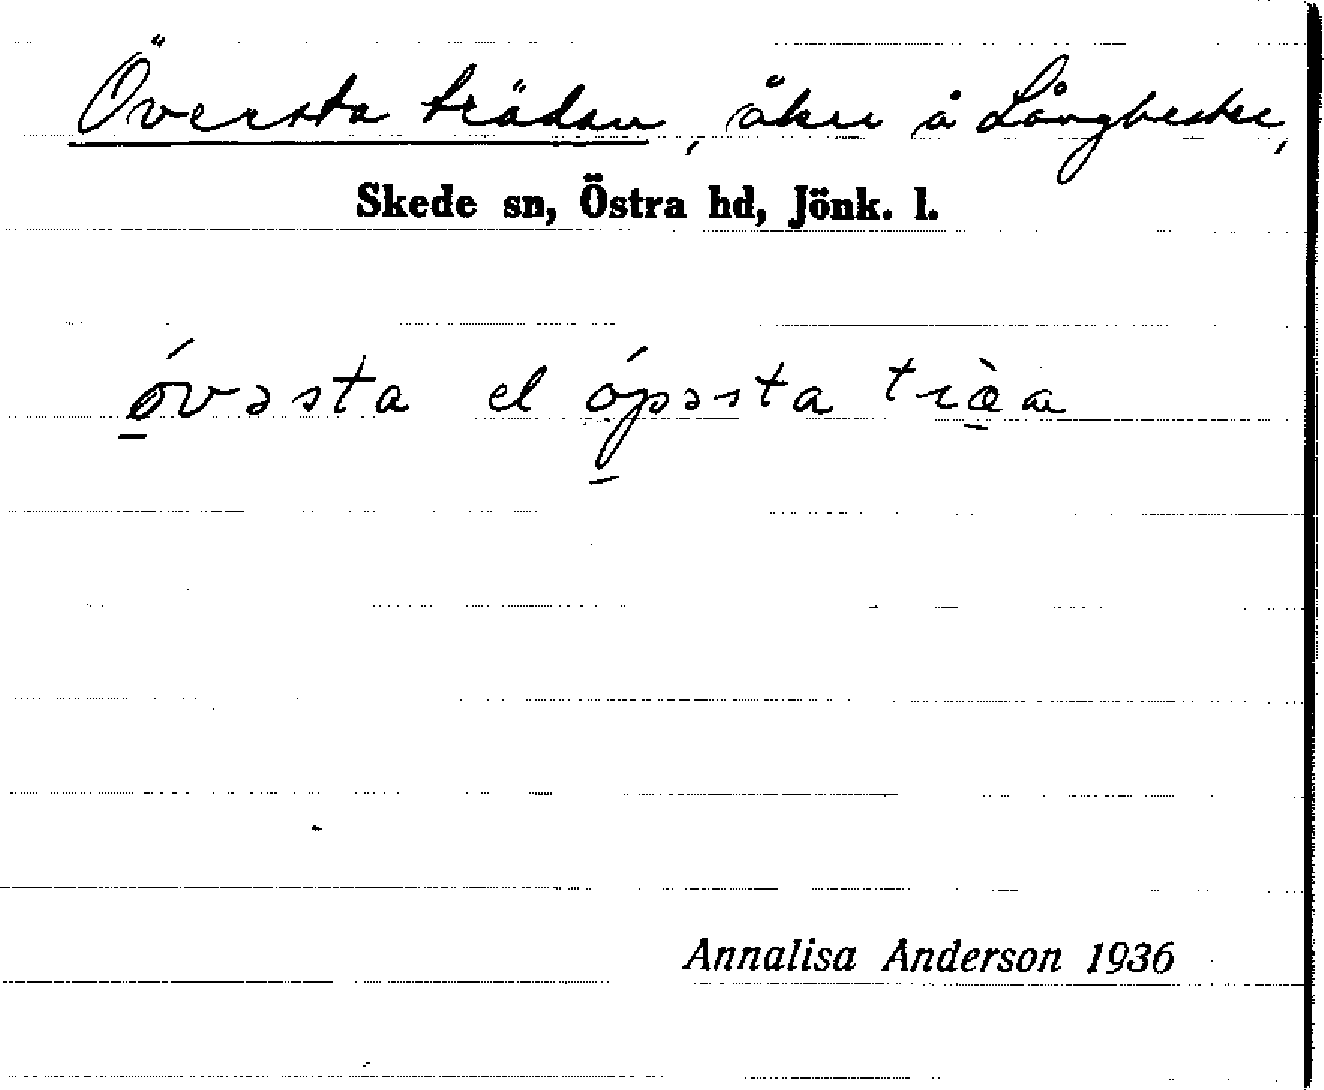 Översta trädan, åker å Långbeske,
Skede sn, Östra hd, Jönk. l.
ǿvəsta el ópəsta træ̀a
Annalisa Anderson 1936